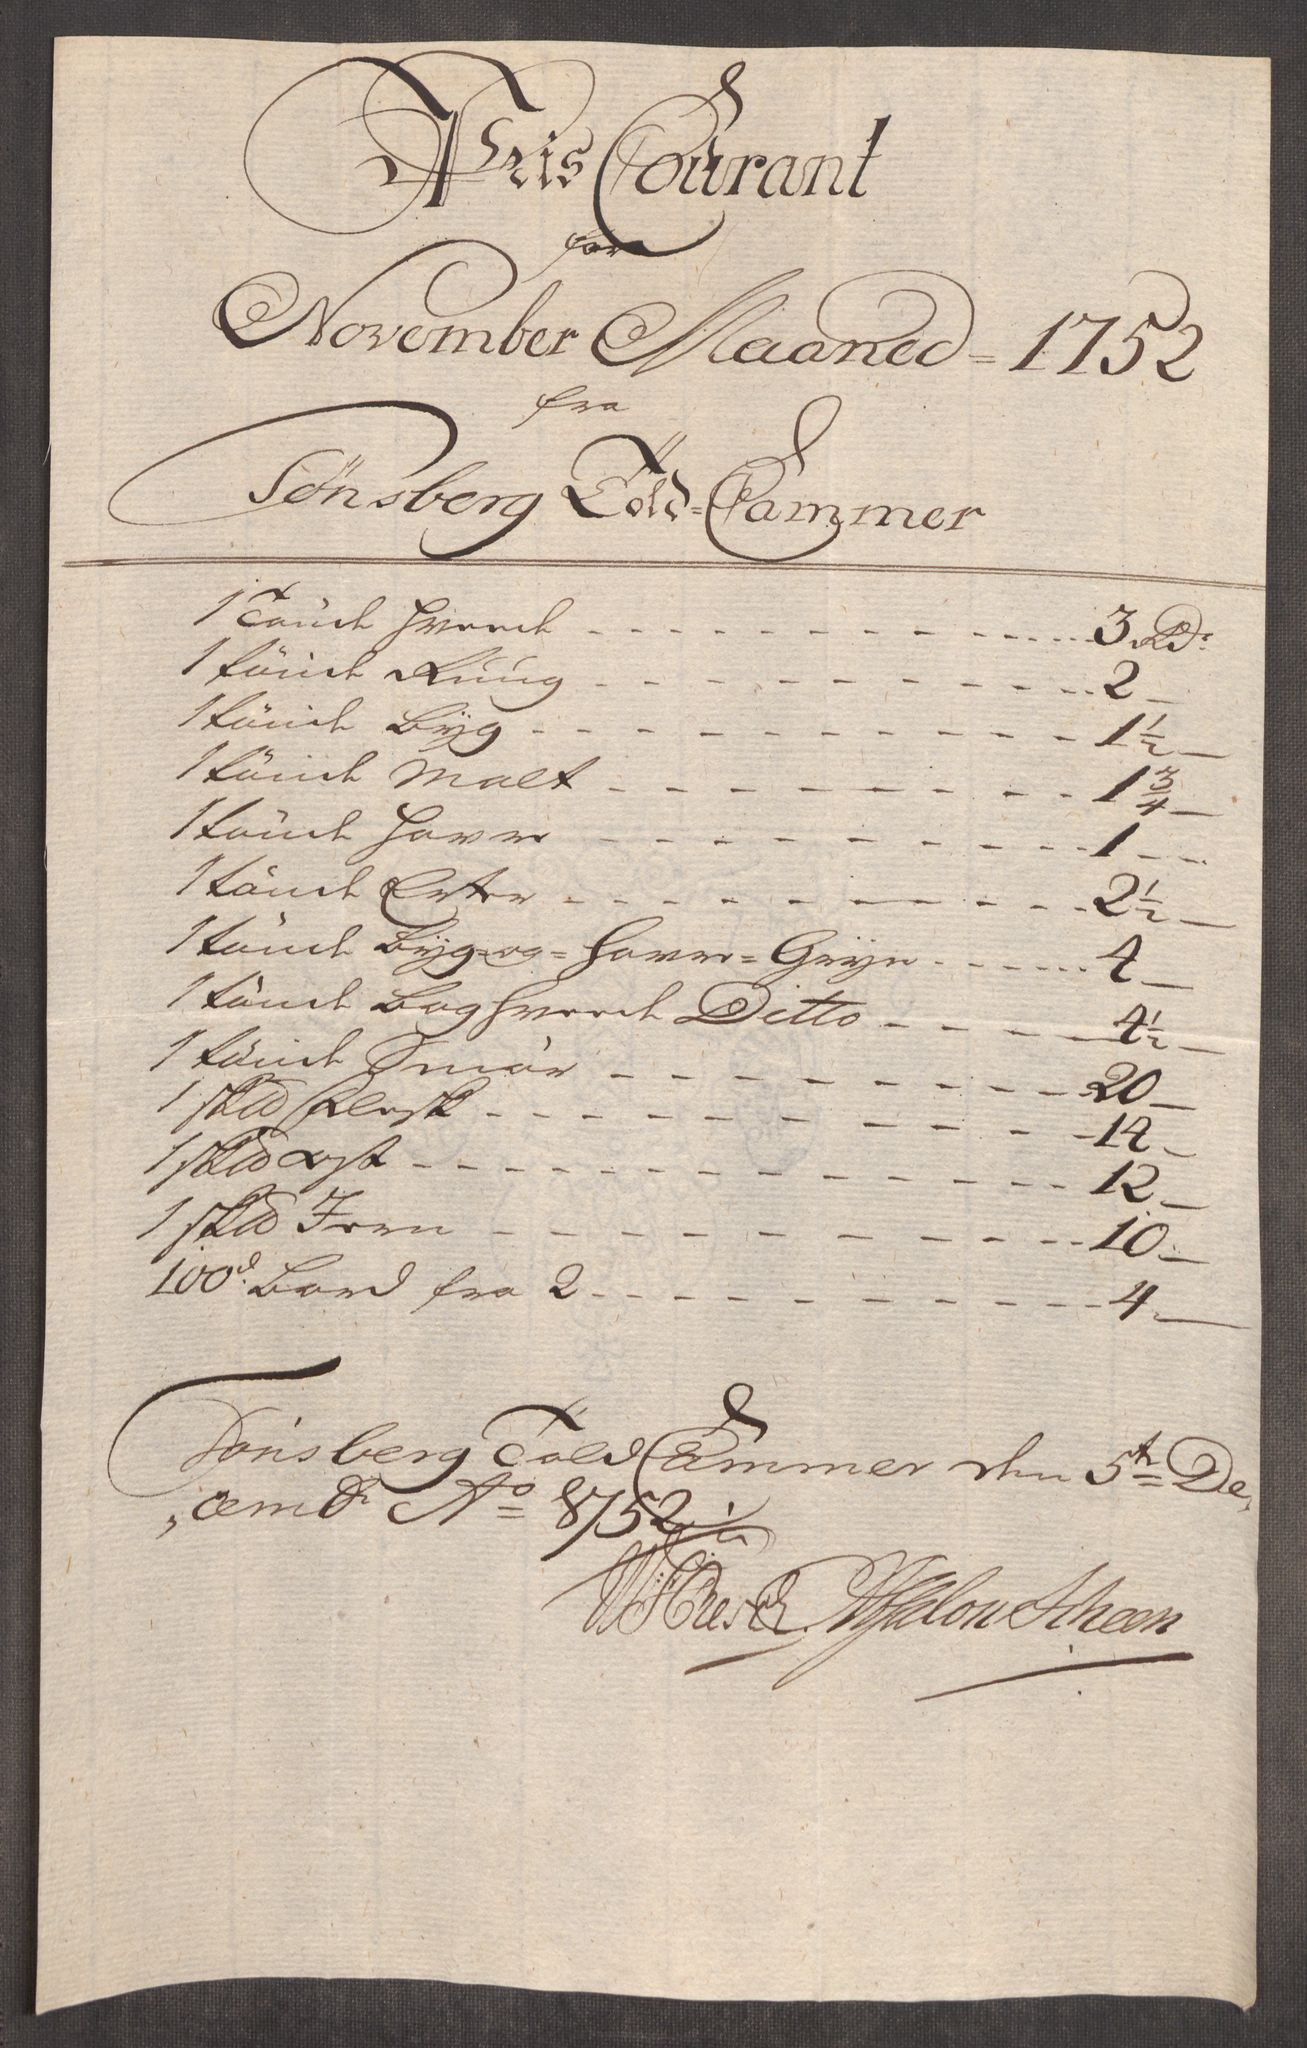 Pris Courant
for
November Maaned = 1752
fra
Tönsberg Told = Cammer
1 Tönde Hvede - - - 3 Rd:
1 tönde Rüüg - - - 2 -
1 tönde Byg - - - 1 1/2 -
1 tönde Malt - - - 1 3/4 -
1 tönde Havre - - - 1 - -
1 tönde Erter - - - 2 1/2 -
1 tönde Byg = og = Havre = Gryn - - - 4 -
1 tönde Boghvede Ditto - - - 4 1/2 -
1 tönde Smör - - - 20 -
1 skld Flesk - - - 14 -
1 skld Ost - - - 12 -
1 skld Jern - - - 10 -
100d: Bord fra 2 - - - 4 -
Tönsberg Told Cammer den 5te De,
,cembr Ao 1752